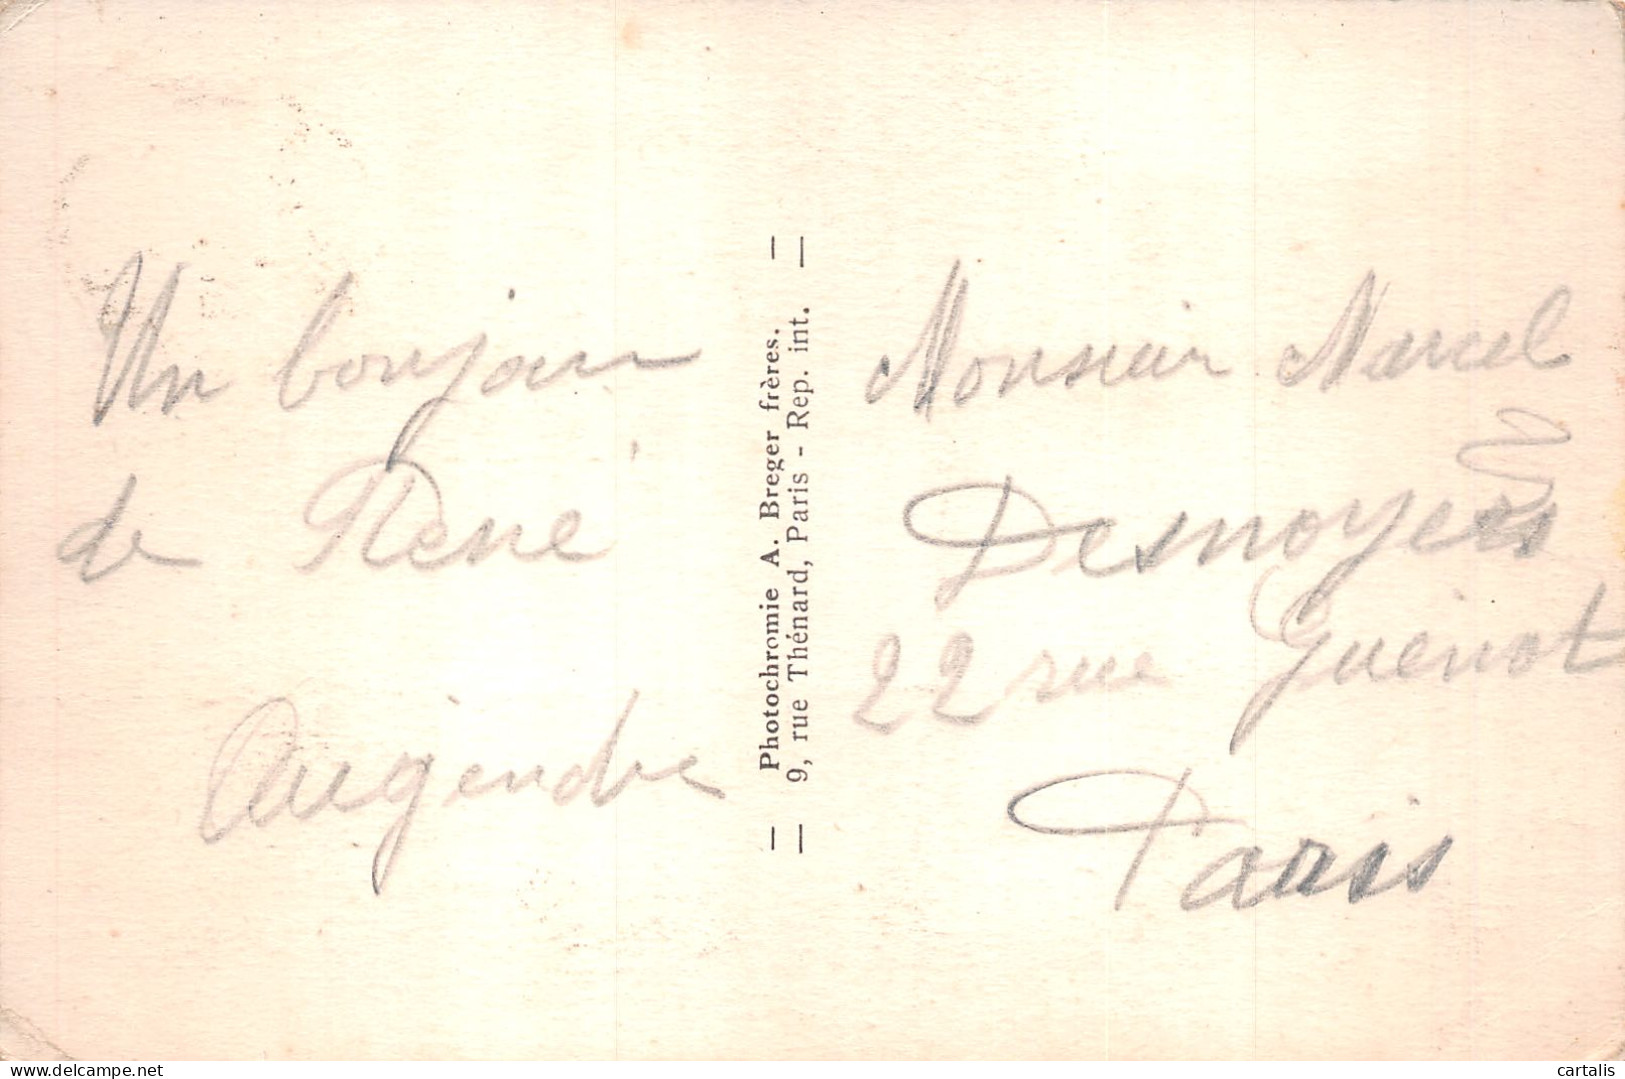 Un bonjour
de René
Augendre
— Photochromie A. Breger frères. —
— 9, rue Thénard, Paris - Rep. int. —
Monsieur Marcel
Desnoyers
22 rue Guénot
Paris
www.delcampe.net
cartalis